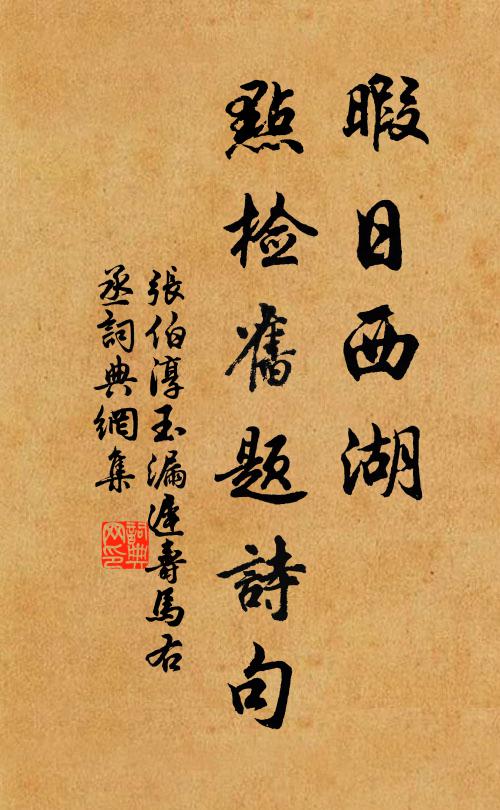 暇日西湖
點檢舊題詩句
張伯淳玉漏遲壽馬右
丞詞典網集
詞典
网印